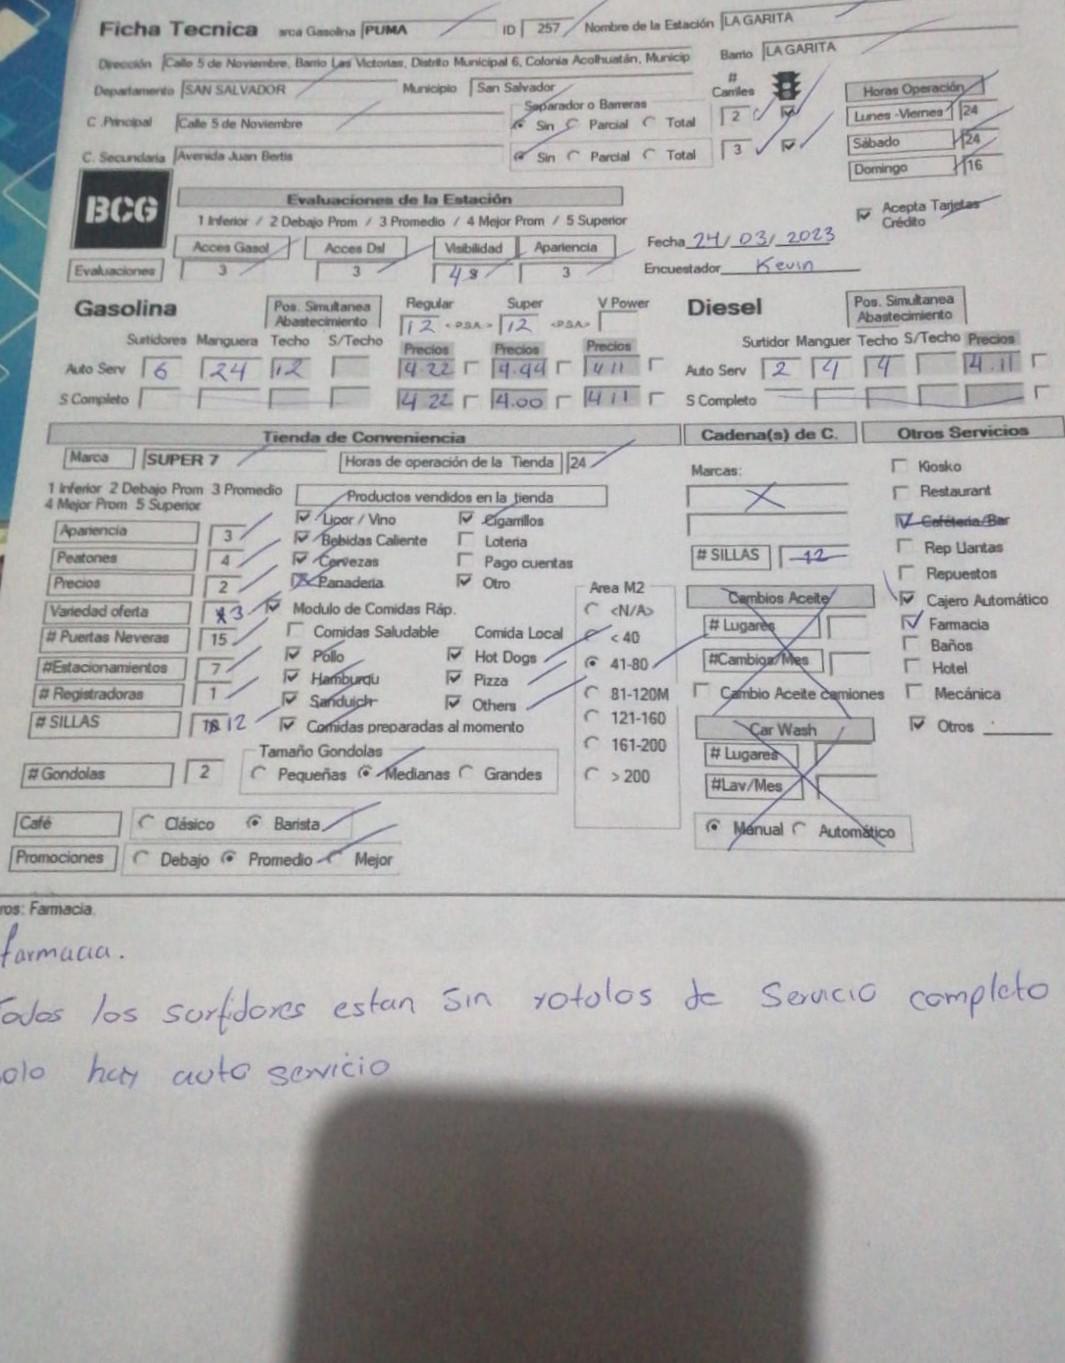 Ficha Tecnica arca Gasolina PUMA ID 257 Nombre de la Estación LA GARITA
Dirección Calle 5 de Noviembre, Barrio Las Victorias, Distrito Municipal 6, Colonia Acolhuatán, Municip Barrio LA GARITA
Departamento SAN SALVADOR Municipio San Salvador # Carriles Horas Operación
Separador o Barreras
C .Principal Calle 5 de Noviembre Sin Parcial Total 2 Lunes -Viernes 24
C. Secundaria Avenida Juan Bertis Sin Parcial Total 3 Sábado 24
Domingo 16
BCG
Evaluaciones de la Estación
1 Inferior / 2 Debajo Prom / 3 Promedio / 4 Mejor Prom / 5 Superior
Acepta Tarjetas Crédito
Acces Gasol Acces Dsl Visibilidad Apariencia Fecha 24/03/2023
Evaluaciones 3 3 4 3 Encuestador Kevin
Gasolina Pos. Simultanea Abastecimiento Regular Super V Power Diesel Pos. Simultanea Abastecimiento
12 <P.S.A.> 12 <P.S.A>
Surtidores Manguera Techo S/Techo Precios Precios Precios Surtidor Manguer Techo S/Techo Precios
Auto Serv 6 24 12 4.22 4.44 4.11 Auto Serv 2 4 4 4.11
S Completo 4.22 4.00 4.11 S Completo
Tienda de Conveniencia Cadena(s) de C. Otros Servicios
Marca SUPER 7 Horas de operación de la Tienda 24 Marcas: Kiosko
1 Inferior 2 Debajo Prom 3 Promedio
4 Mejor Prom 5 Superior
Productos vendidos en la tienda Restaurant
Apariencia 3 Licor / Vino Cigarrillos Cafeteria/Bar
Peatones 4 Bebidas Caliente Loteria # SILLAS 12 Rep Llantas
Precios 2 Cervezas Pago cuentas Repuestos
Panaderia Otro Area M2
Variedad oferta 3 Modulo de Comidas Ráp. <N/A> Cambios Aceite Cajero Automático
# Puertas Neveras 15 Comidas Saludable Comida Local < 40 # Lugares Farmacia
#Estacionamientos 7 Pollo Hot Dogs 41-80 #Cambios/Mes Baños
# Registradoras 1 Hamburgu Pizza 81-120M Cambio Aceite camiones Hotel
Mecánica
# SILLAS 12 Sanduich Others 121-160 Car Wash Otros
Comidas preparadas al momento
# Gondolas 2 Tamaño Gondolas 161-200 # Lugares
Pequeñas Medianas Grandes > 200 #Lav/Mes
Café Clásico Barista Manual Automático
Promociones Debajo Promedio Mejor
ros: Farmacia.
farmacia.
odos los surtidores estan sin rotolos de Servicio completo
olo hay auto servicio